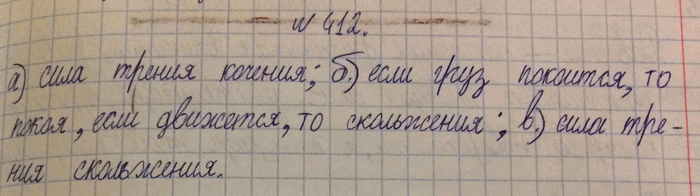 № 412.
а) сила трения качения; б.) если груз покоится, то
покоя, если движется, то скольжения; в.) сила тре-
ния скольжения.